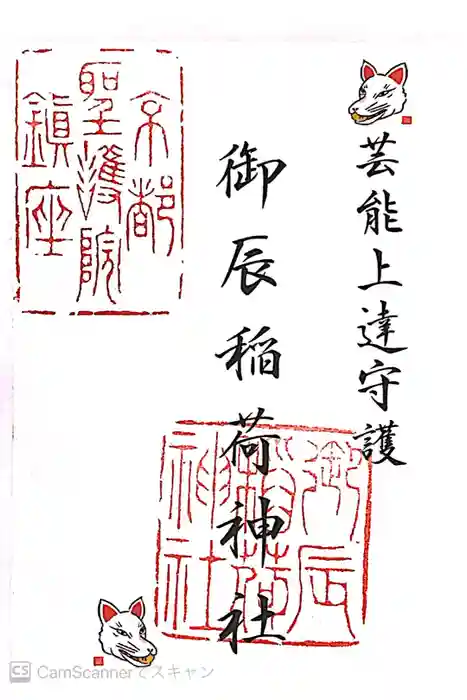 芸能上達守護
御辰稲荷神社
京都
聖護院
鎮座
御辰
稲荷
神社
CS CamScannerでスキャン